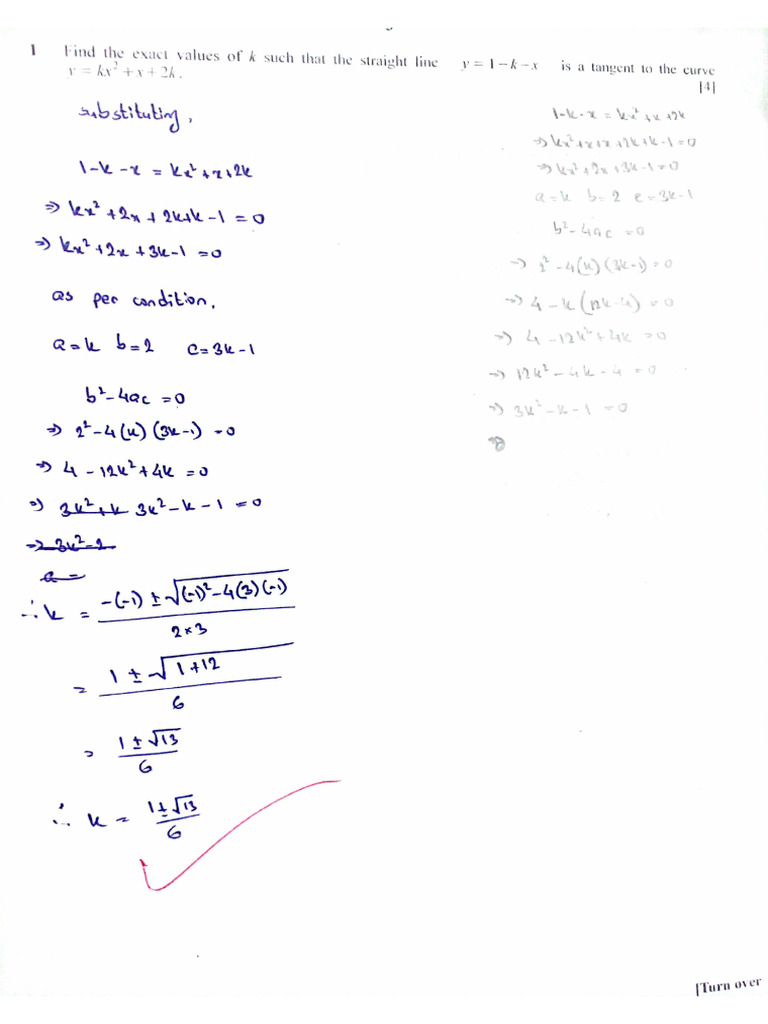 1 Find the exact values of k such that the straight line y = 1 − k − x is a tangent to the curve
y = kx² + x + 2k. [4]
substituting,
1-k-x = kx²+x+2k
⇒ kx²+2x+2k+k-1=0
⇒ kx²+2x+3k-1=0
as per condition,
a=k b=2 c=3k-1
b²-4ac=0
⇒ 2²-4(k)(3k-1)=0
⇒ 4-12k²+4k=0
⇒ 3k²+k 3k²-k-1=0
⇒ 3k²-2
a=
∴k = (-(-1) ± √((-1)²-4(3)(-1)))/(2×3)
= (1±√(1+12))/6
= (1±√13)/6
∴ k = (1±√13)/6
1-k-x = kx²+x+2k
⇒ kx²+x+x+2k+k-1=0
⇒ kx²+2x+3k-1=0
a=k b=2 c=3k-1
b²-4ac=0
⇒ 2²-4(k)(3k-1)=0
⇒ 4-k(12k-4)=0
⇒ 4-12k²+4k=0
⇒ 12k²-4k-4=0
⇒ 3k²-k-1=0
[Turn over